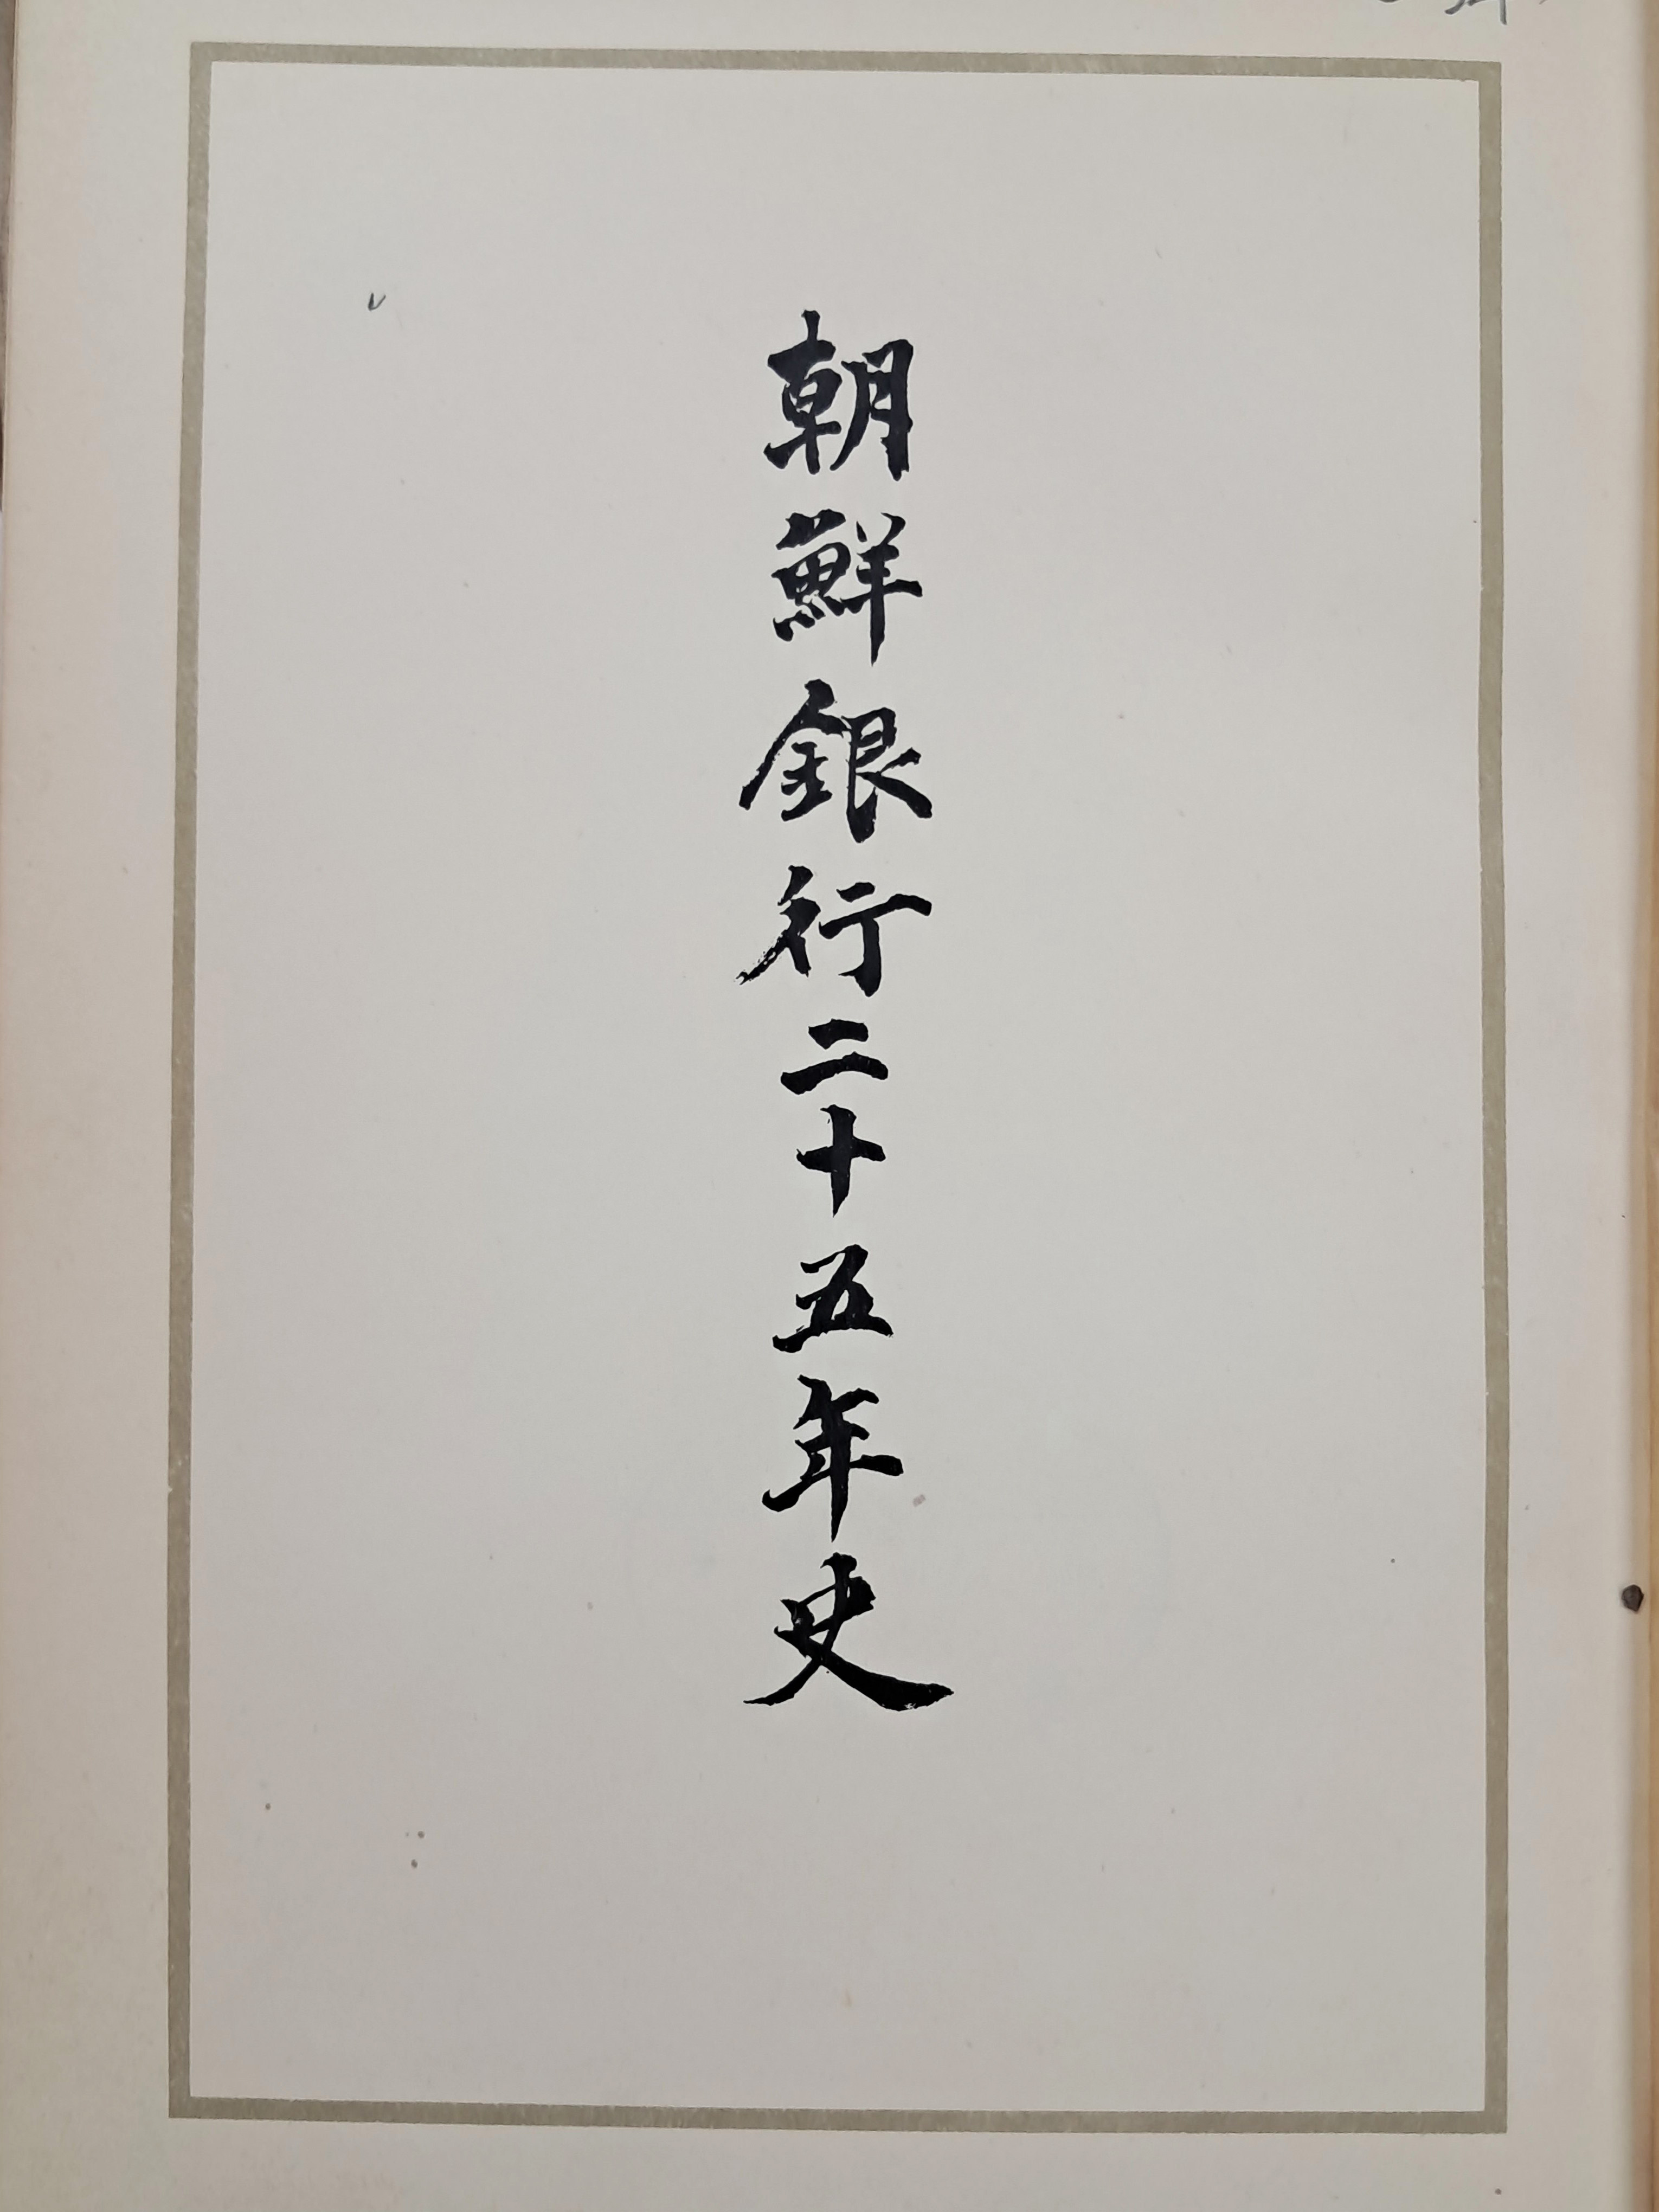 朝鮮銀行二十五年史